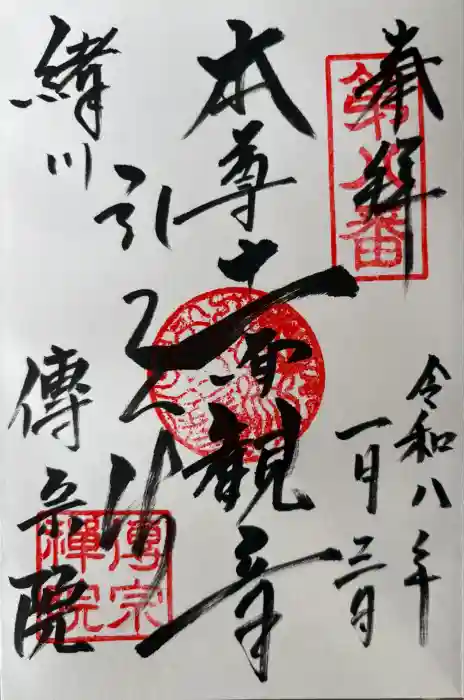 奉拝
第八番
令和八年
一月三日
本尊十一面観音
緒川
傳宗院
傳宗
禪院